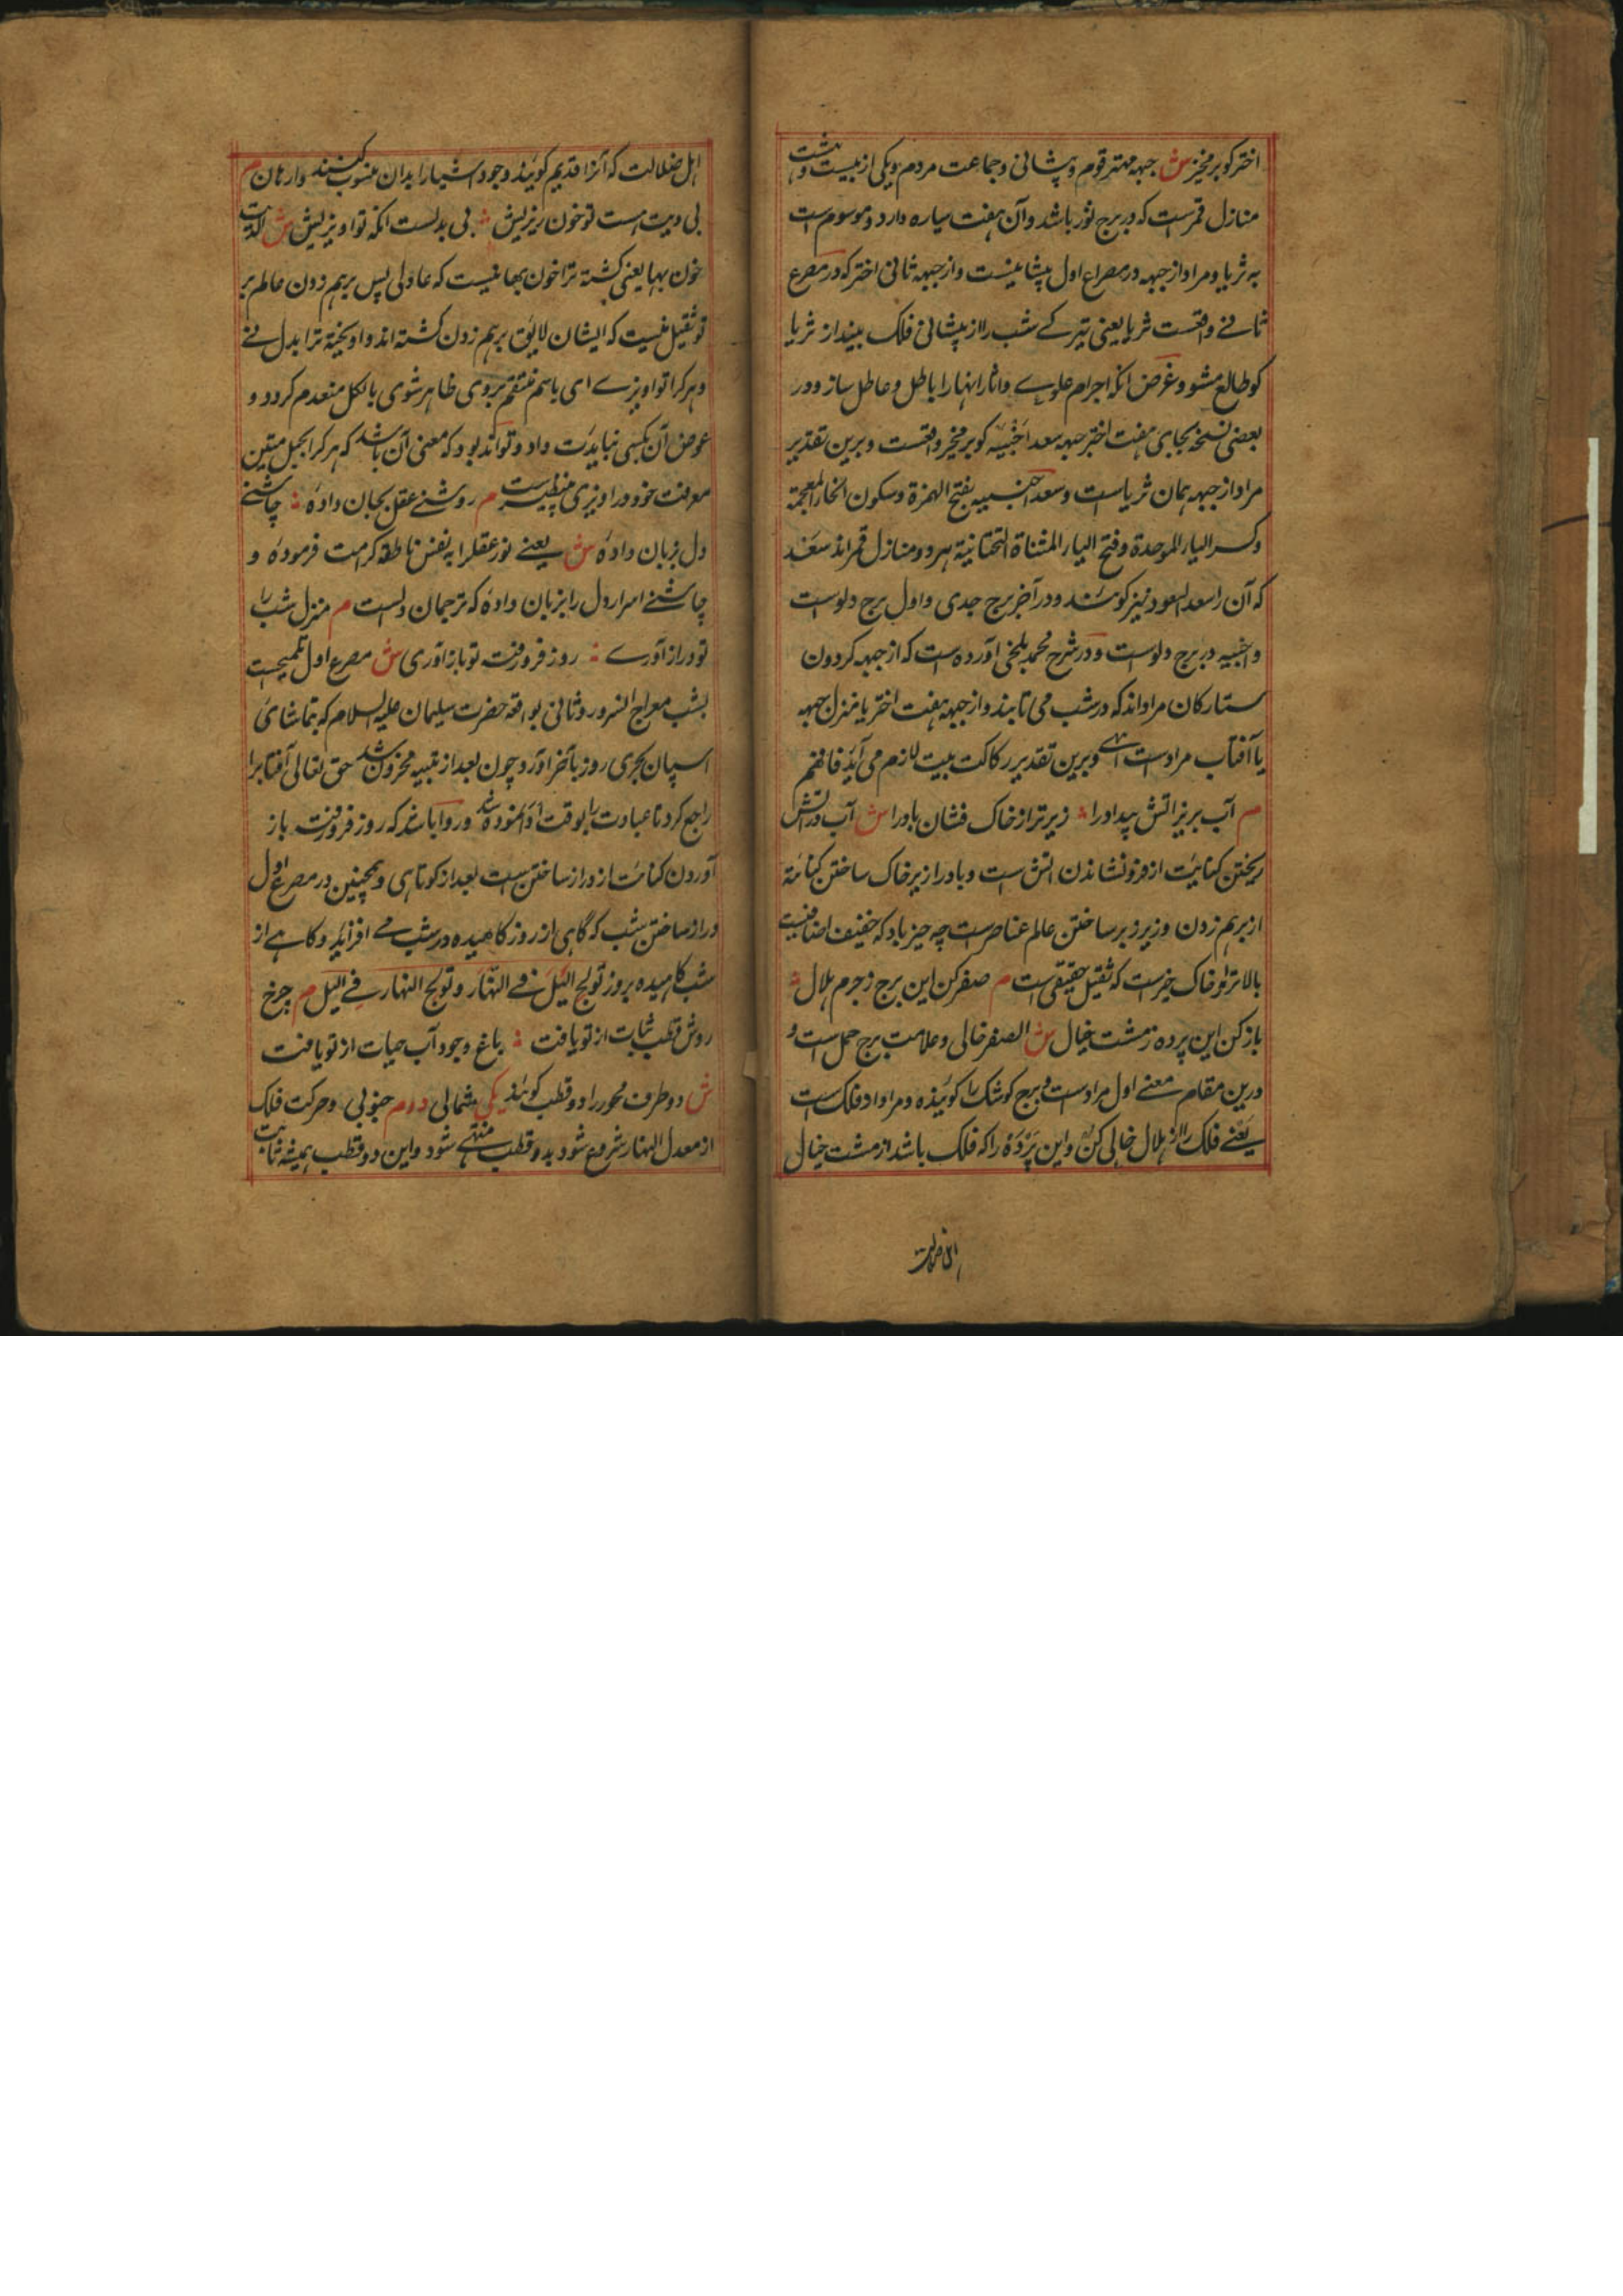 اختر کو برمخیز ش جبهه مهتر قوم و پیشانی و جماعت مردم و یکی از بیست و هشت
منازل قمرست که در برج ثور باشد و آن هفت سیاره دارد و موسوم است
به ثریا و مراد از جبهه در مصراع اول پیشانیست و از جبهه ثانی اختر که در مصرع
ثانے واقعست ثریا یعنی تیرکے شب را از پیشانی فلک بیند از ثریا
کو طالع مشو و غرض انکه اجرام علوے و اثار انها را باطل و عاطل ساز و در
بعضی نسخه بجای هفت اختر جبهه سعد اخبیه کو برمخیز واقعست و برین تقدیر
مراد از جبهه همان ثریا است و سعد اخبیه بفتح الهمزة و سکون الخاء المعجمة
و کسر الباء الموحدة و فتح الیاء المثناة التحتانیة هر دو منازل قمر اند سعد
که آن را سعد السعود نیز کویند و در آخر برج جدی و اول برج دلوست
و اخبیه در برج دلوست و در شرح محمد بلخی آورده است که از جبهه کردون
ستارکان مراد اند که در شب می تابند و از جبهه هفت اختر یا منزل جبهه
یا آفتاب مرادست انتهے و برین تقدیر رکاکت بیت لازم می آید فافهم
م آب بریز اتش بیداد را زیر تر از خاک فشان باد را ش آب در اتش
ریختن کنایت از فرو نشاندن اتش است و باد را زیر خاک ساختن کنایة
از برهم زدن و زیر و زبر ساختن عالم عناصرست چه حیز باد که خفیف اضافیست
بالاتر از خاک خیرست که ثقیل حقیقی است م صفر کن این برج ز جرم هلال
باز کن این پرده ز مشت خیال ش الصفر خالی و علامت برج حمل است و
درین مقام معنے اول مرادست و برج کوشک را کویند و مراد فلک است
یعنے فلک را از هلال خالی کن و این پرده را که فلک باشد از مشت خیال
اهل ضلالت
اهل ضلالت که انرا قدیم کویند و وجود اشیا را بدان منسوب کنند وارهان م
بی دیت است تو خون ریزیش بی بدلست انکه تو اویزیش ش الدیت
خون بها یعنی کشته ترا خون بها نیست که عادلی پس برهم زدن عالم بر
تو ثقیل نیست که ایشان لایق برهم زدن کشته اند و اویخته ترا بدل نے
و هر کرا تو اویزے ای باسم منتقم بر وی ظاهر شوی بالکل منعدم کردد و
عوض آن کسی نیایدت داد و تواند بود که معنی آن باشد که هر کرا بحبل متین
معرفت خود در اویزی بینظیرست م روشنے عقل بجان داده چاشنے
دل بزبان داده ش یعنے نور عقل را به نفس ناطقه کرامت فرموده و
چاشنے اسرار دل را بزبان داده که ترجمان دلست م منزل شب را
تو دراز آورے روز فرو رفت تو باز آوری ش مصرع اول تلمیحیست
بشب معراج النسرور و ثانی بواقعه حضرت سلیمان علیه السلام که بتماشای
اسپان بحری روز بآخر آورد و چون بعد از تنبیه محزون شد حق تعالی آفتاب را
راجع کرد تا عبادت را بوقت ادا نموده شد و روا باشد که روز فرو رفت باز
آوردن کنایت از دراز ساختن ست بعد از کوتاهی و همچنین در مصرع اول
دراز ساختن شب که گاهی از روز کاهیده در شب مے افزاید و کاهے از
شب کاهیده بروز تولج الیل فے النهار و تولج النهار فے الیل م چرخ
روش قطب ثبات از تو یافت باغ وجود آب حیات از تو یافت
ش دو طرف محور را دو قطب کویند یکی شمالی دوم جنوبی و حرکت فلک
از معدل النهار شروع شود بدو قطب منتهے شود و این دو قطب همیشه ثابت